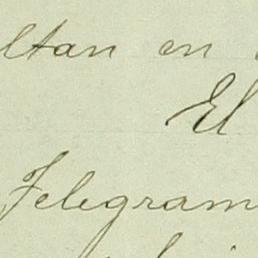 ltan en
El
Telegram